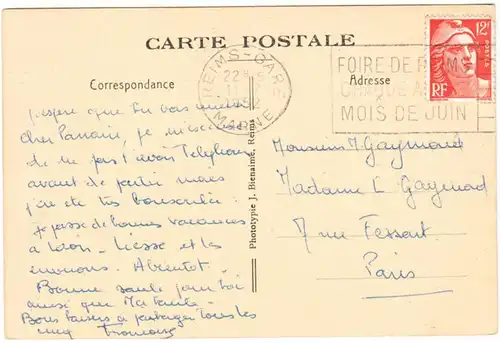 CARTE POSTALE
Correspondance
Adresse
REIMS-GARE
22H
1952
MARNE
FOIRE DE REIMS
CHAQUE A
MOIS DE JUIN
12F
RF
Phototypie J. Bienaimé, Reims
J'espère que tu vas mieux
cher Parrain, je m'excuse
de ne pas t'avoir Téléphoné
avant de partir mais
j'ai été très bousculée.
je passe de bonnes vacances
à Laon - Liesse et les
environs. A bientôt.
Bonne santé pour toi
ainsi que Ma tante.
Bons baisers à partager tous les
cinq Françoise
Monsieur M. Gaymond
Madame L
7 rue Fessart
Paris